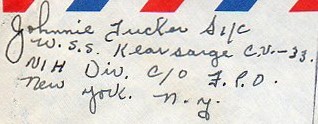 Johnnie Tucker S1/c
U.S.S. Kearsarge C.V.-33.
N/H Div. C/O F.P.O.
New York. N.Y.